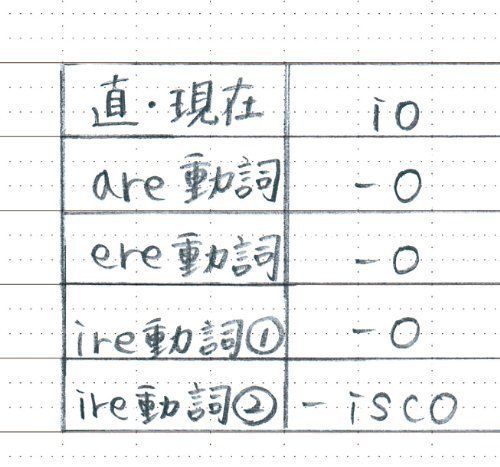 直・現在 io
are動詞 -o
ere動詞 -o
ire動詞① -o
ire動詞② -isco